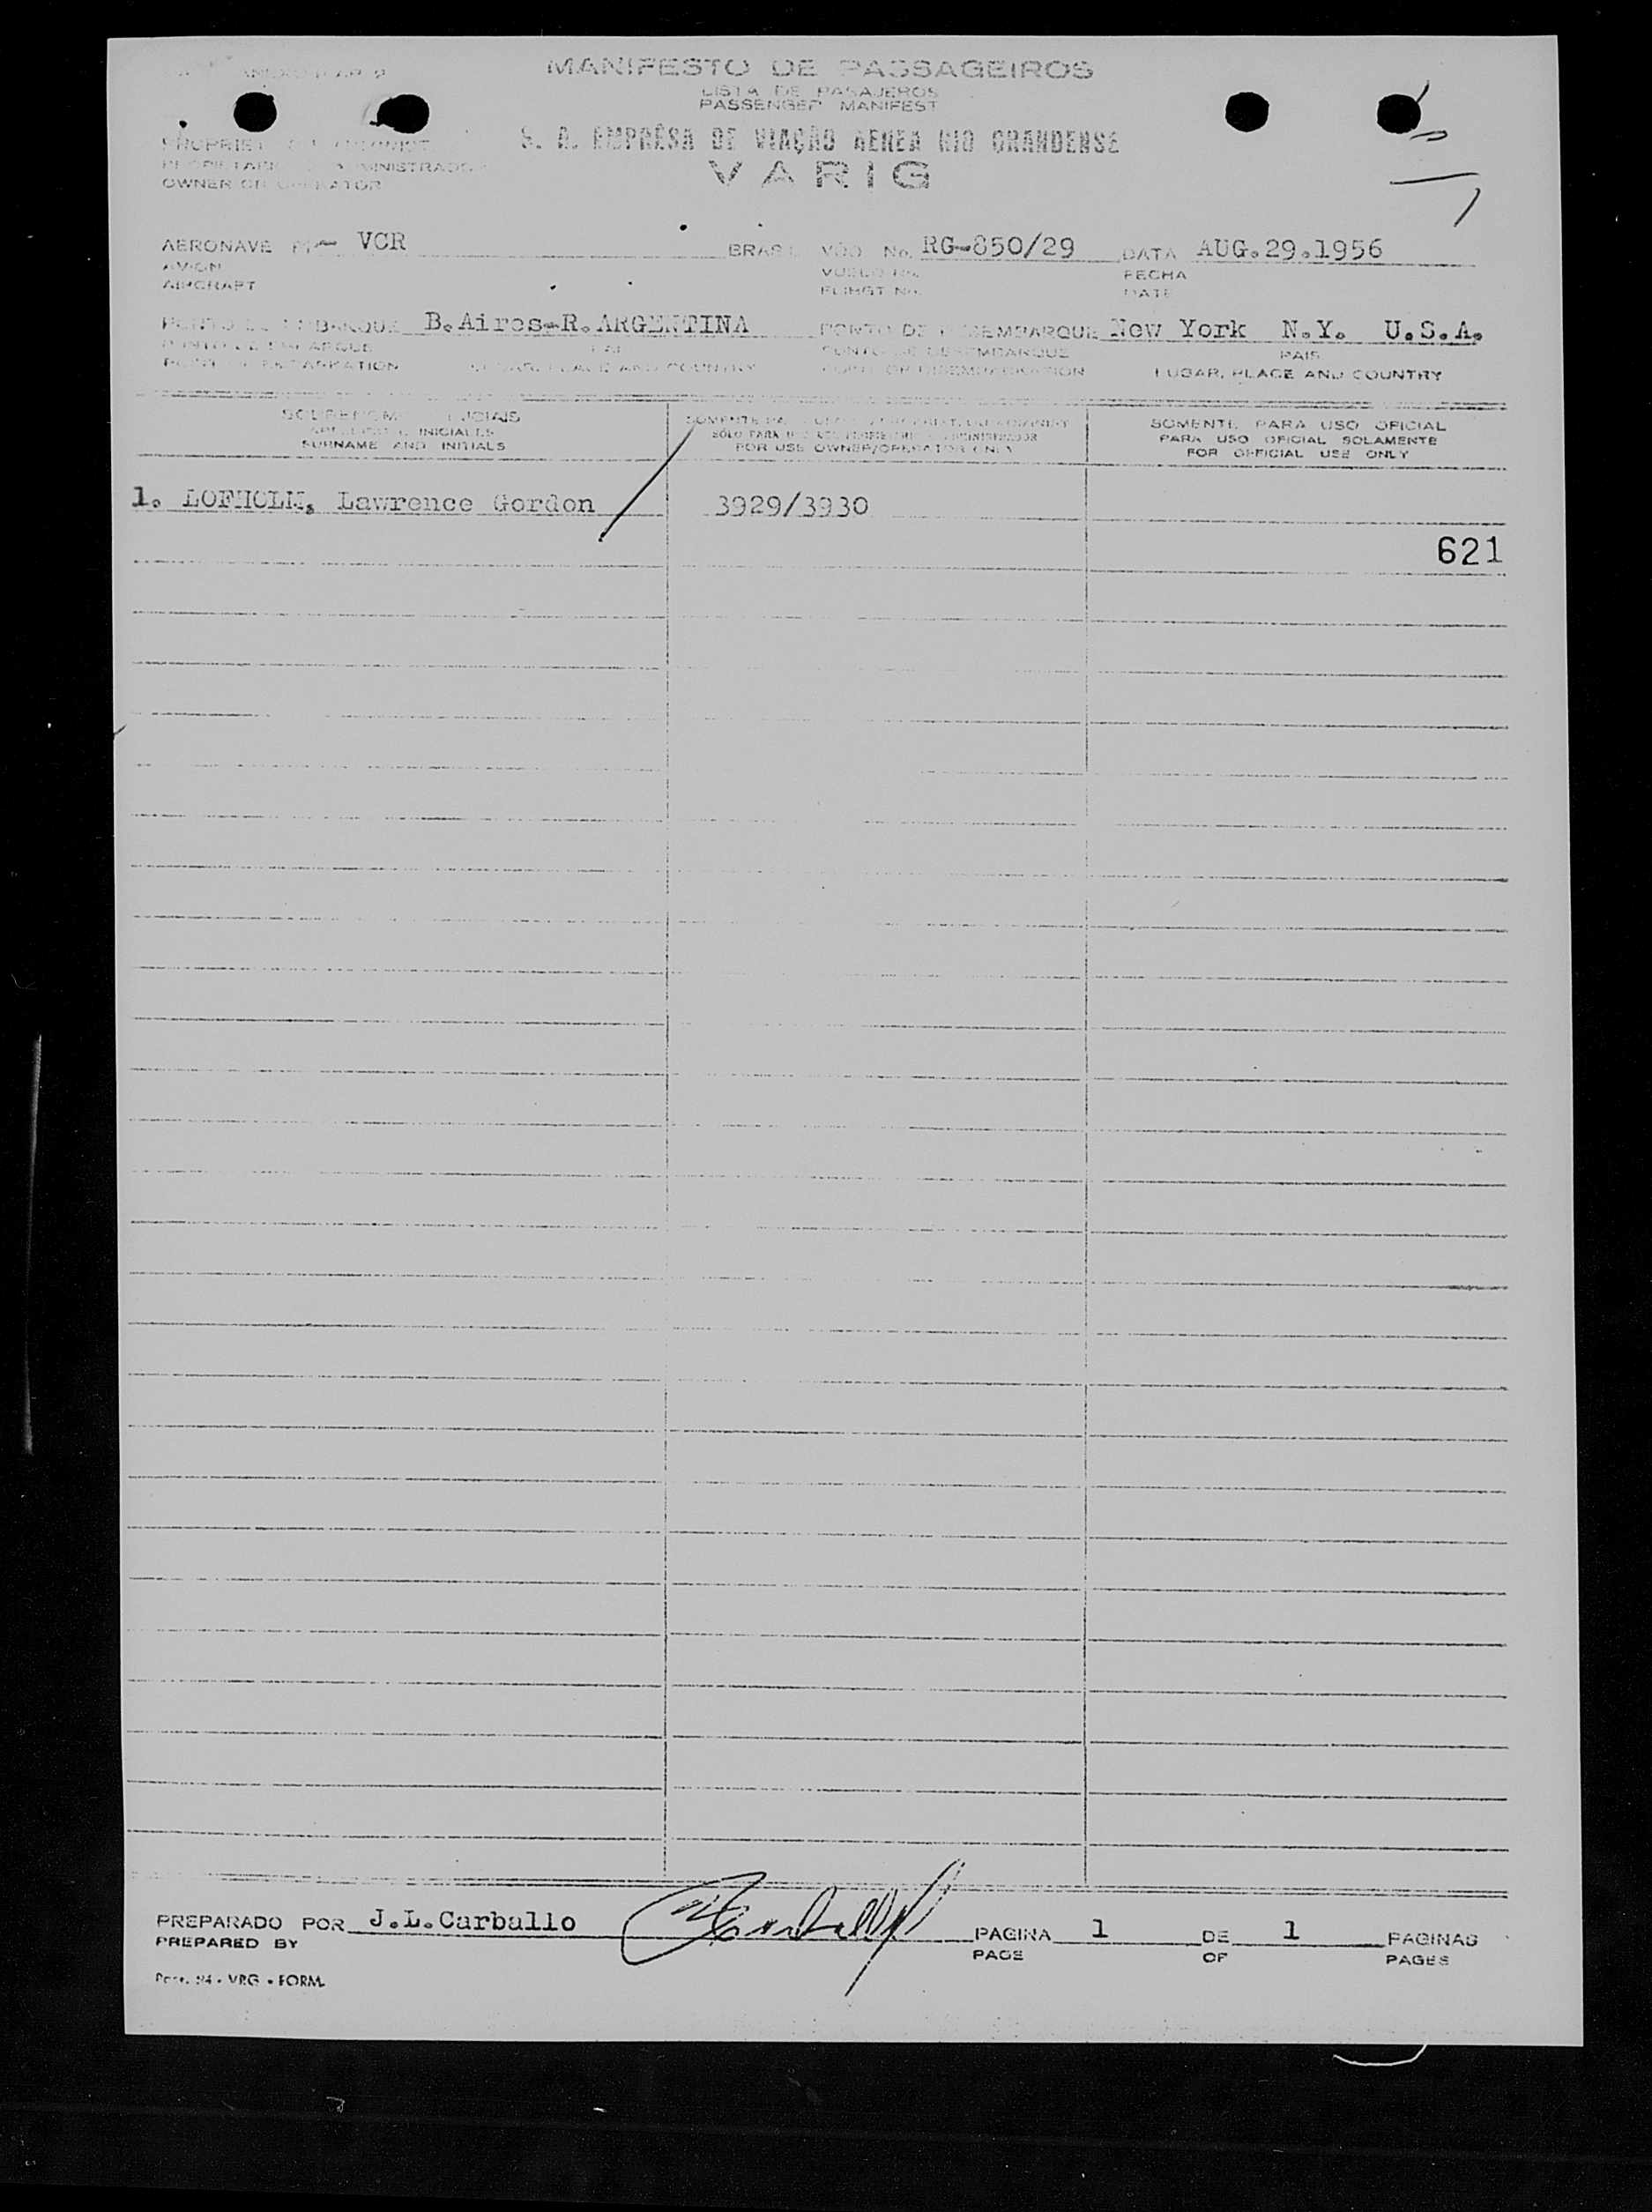 MANIFESTO DE PASSAGEIROS
LISTA DE PASAJEROS
PASSENGER MANIFEST
S. A. EMPRÊSA DE VIAÇÃO AEREA RIO GRANDENSE
VARIG
OWNER OR OPERATOR
AERONAVE VCR BRASIL VÔO No. RG-850/29 DATA AUG.29.1956
AVION VUELO No. FECHA
AIRCRAFT FLIHGT No. DATE
PONTO DE EMBARQUE B.Aires-R.ARGENTINA PONTO DE DESEMBARQUE New York N.Y. U.S.A.
PUNTO DE EMBARQUE PUNTO DE DESEMBARQUE PAIS
POINT OF EMBARKATION LUGAR, PLACE AND COUNTRY POINT OF DISEMBARKATION LUGAR, PLACE AND COUNTRY
SOBRENOME INICIAIS SOMENTE PARA USO OFICIAL
INICIALES PARA USO OFICIAL SOLAMENTE
SURNAME AND INITIALS FOR USE OWNER/OPERATOR ONLY FOR OFFICIAL USE ONLY
1. LOFHOLM, Lawrence Gordon 3929/3930
621
PREPARADO POR J.L.Carballo PAGINA 1 DE 1 PAGINAS
PREPARED BY PAGE OF PAGES
VRG - FORM.